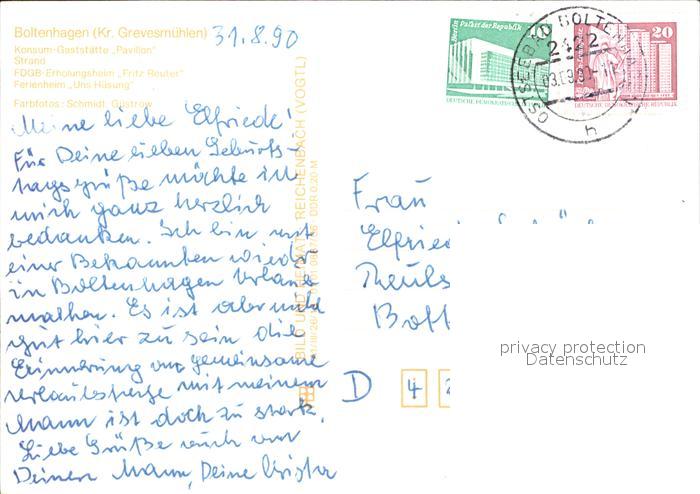 Boltenhagen (Kr. Grevesmühlen)
31.8.90
Konsum-Gaststätte „Pavillon"
Strand
FDGB-Erholungsheim „Fritz Reuter"
Ferienheim „Uns Hüsung"
Farbfotos: Schmidt, Güstrow
Meine liebe Elfriede!
Für Deine lieben Geburts-
tagsgrüße möchte ich
mich ganz herzlich
bedanken. Ich bin mit
einer Bekannten wieder
in Boltenhagen Urlaub
machen. Es ist aber nicht
gut hier zu sein die
Erinnerung an gemeinsame
Urlaubstage mit meinem
Mann ist doch zu stark.
Liebe Grüße auch an
Deinen Mann, Deine Christa
BILD UND HEIMAT REICHENBACH (VOGTL)
DDR 0,20 M
Berlin Palast der Republik
10
DEUTSCHE DEMOKRATISCHE REPUBLIK
20
DEUTSCHE DEMOKRATISCHE REPUBLIK
OSTSEEBAD BOLTENHAGEN
2422
h
Frau
Elfried
Bott
D 4 2
privacy protection
Datenschutz